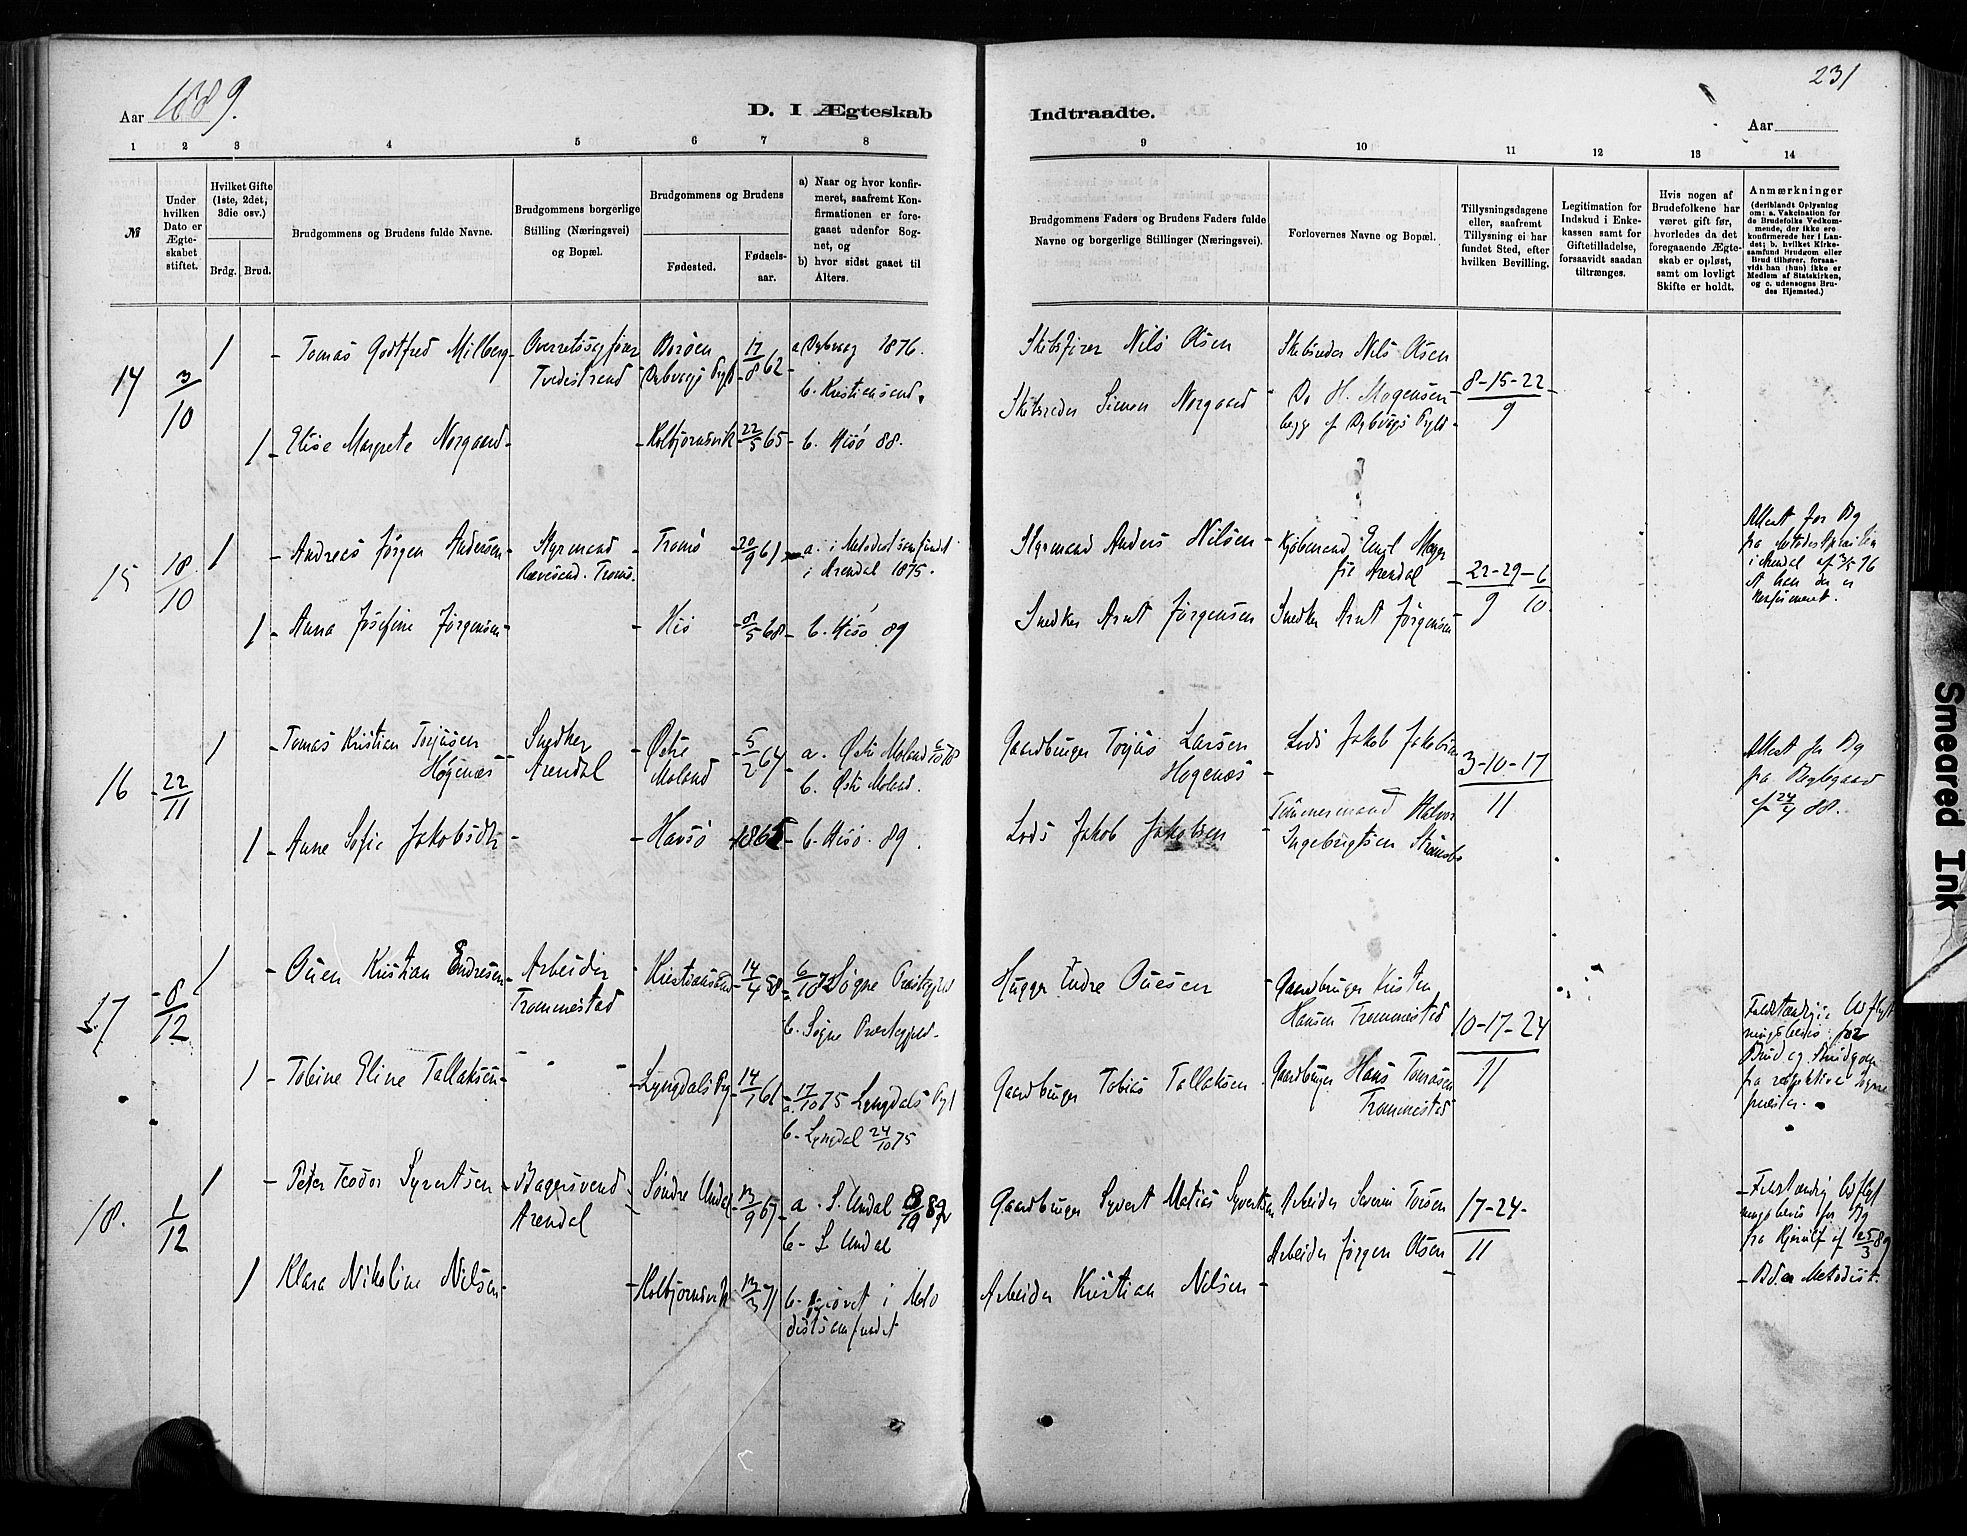 Aar 1889.
D. I Ægteskab
Indtraadte.
231
Aar
1 2 3 4 5 6 7 8
9 10 11 12 13 14
№
Under hvilken Dato er Ægteskabet stiftet.
Hvilket Gifte (1ste, 2det, 3die osv.)
Brdg. Brud.
Brudgommens og Brudens fulde Navne.
Brudgommens borgerlige Stilling (Næringsvei) og Bopæl.
Brudgommens og Brudens
Fødested.
Fødsels-aar.
a) Naar og hvor konfirmeret, saafremt Konfirmationen er foregaaet udenfor Sognet, og
b) hvor sidst gaaet til Alters.
Brudgommens Faders og Brudens Faders fulde Navne og borgerlige Stillinger (Næringsvei).
Forlovernes Navne og Bopæl.
Tillysningsdagene eller, saafremt Tillysning ei har fundet Sted, efter hvilken Bevilling.
Legitimation for Indskud i Enkekassen samt for Giftetilladelse, forsaavidt saadan tiltrænges.
Hvis nogen af Brudefolkene har været gift før, hvorledes da det foregaaende Ægteskab er opløst, samt om lovligt Skifte er holdt.
Anmærkninger
(deriblandt Oplysning om: a. Vakcination for de Brudefolks Vedkommende, der ikke ere konfirmerede her i Landet; b. hvilket Kirkesamfund Brudgom eller Brud tilhører, forsaavidt han (hun) ikke er Medlem af Statskirken, og c. udensogns Brudes Hjemsted.)
14 3/10 1 - Tomas Godtfred Milberg - Overretssagfører Tvedestrand - Borøen Dybvags Pgld - 17/8 62 - a. Dybvag 1876.
b. Kristiansand.
Skibsfører Nils Olsen
Skibsreder Nils Olsen
8-15-22
9
1 - Elise Margrete Norgaard - Kolbjornsvik - 22/5 65 - b. Hisø 88.
Skibsreder Simon Norgaard
Do H. Mogensen
begge af Dybvags Pgld
15 18/10 1 - Andreas Jørgen Andersen - Styrmand Rævesand. Tromø - Tromø - 20/9 61 - a. i Metodistsamfundet i Arendal 1875.
Styrmand Anders Nilsen - Kjøbmand Emil Meyer Arendal
22-29-6
9 10
Attest for Bg
fra Metodistpræsten
i Arendal
At han der er
konfirmeret.
1 - Anna Josefine Jørgensen - Hisø - 8/5 68 - b. Hisø 89
Snedker Arnt Jørgensen
Snedker Arnt Jørgensen
16 22/11 1 - Tomas Kristian Torjusen Høgenæs - Snedker Arendal - Østre Moland - 5/2 64 - a. Østre Moland
b. Østre Moland.
Gaardbruger Torjus Larsen Høgenæs
Lods Jakob Jakobsen
3-10-17
11
Attest for Bg
fra
af 24/4 88.
1 - Anne Sofie Jakobsdtr - Havsø - 1865 - b. Hisø. 89.
Lods Jakob Jakobsen
Tømmermand Halvor
Ingebrigtsen Strømsbo
17 8/12 1 - Ouen Kristian Endresen - Arbeider Trommestad - Kristiansand - 14/4 58 - 6/10 72 Søgne Præstegjeld
b. Søgne Præstegjeld.
Hugger Endre Ouesen
Gaardbruger Kristen
Hansen Trommestad
10-17-24
11
Fuldstændige Udflytningsbevis for
Brud og Brudgom
fra respektive Sognepræster.
1 - Tobine Eline Tallaksen - Lyngdals Pg - 14/1 61 - a. 17/10 75 Lyngdals Pgl
b. Lyngdal 24/10 75
Gaardbruger Tobias Tallaksen - Gaardbruger Hans Tomasen
Trommestad
18. 1/12 1 - Peter Teodor Syvertsen - Bagersvend Arendal - Søndre Undal - 13/9 67 - a. S. Undal
b. S Undal
Gaardbruger Syvert Matias Syvertsen
Arbeider Severin Torsen
17-24-
11
- Fuldstændig Udflytningsbevis for Bg
fra
- Bd er Metodist.
1 Klara Nikoline Nilsen - Kolbjornsvik - 13/3 71 - b. i Metodistsamfundet
Arbeider Kristian Nilsen -
Arbeider Jørgen Olsen
Smeared Ink